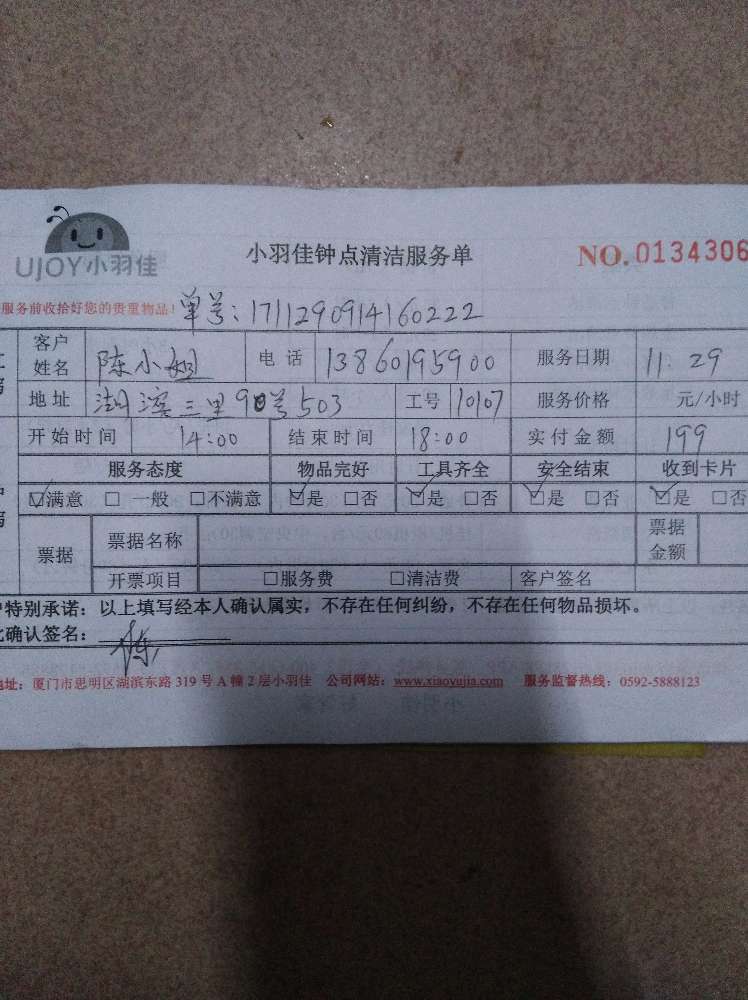 UJOY小羽佳
小羽佳钟点清洁服务单
NO.0134306
服务前收拾好您的贵重物品!
单号:1711290914160222
客户姓名 陈小姐 电话 13860195900 服务日期 11.29
地址 湖滨三里90号503 工号 10107 服务价格 元/小时
开始时间 14:00 结束时间 18:00 实付金额 199
服务态度 物品完好 工具齐全 安全结束 收到卡片
☑满意 □一般 □不满意 ☑是 □否 ☑是 □否 ☑是 □否 ☑是 □否
票据 票据名称 票据金额
开票项目 □服务费 □清洁费 客户签名
特别承诺:以上填写经本人确认属实,不存在任何纠纷,不存在任何物品损坏。
确认签名: 陈
地址:厦门市思明区湖滨东路319号A幢2层小羽佳 公司网站:www.xiaoyujia.com 服务监督热线:0592-5888123